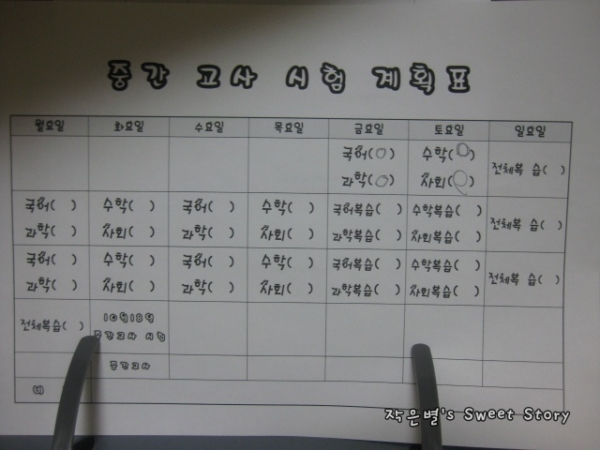 중간 고사 시험 계획표
월요일 화요일 수요일 목요일 금요일 토요일 일요일
국어(○) 수학(○)
전체복 습( )
과학(○) 사회(○)
국어( ) 수학( ) 국어( ) 수학( ) 국어복습( ) 수학복습( )
전체복 습( )
과학( ) 사회( ) 과학( ) 사회( ) 과학복습( ) 사회복습( )
국어( ) 수학( ) 국어( ) 수학( ) 국어복습( ) 수학복습( )
전체복 습( )
과학( ) 사회( ) 과학( ) 사회( ) 과학복습( ) 사회복습( )
전체복습( ) 10월18일
중간고사 시험
중간고사
작은별's Sweet Story